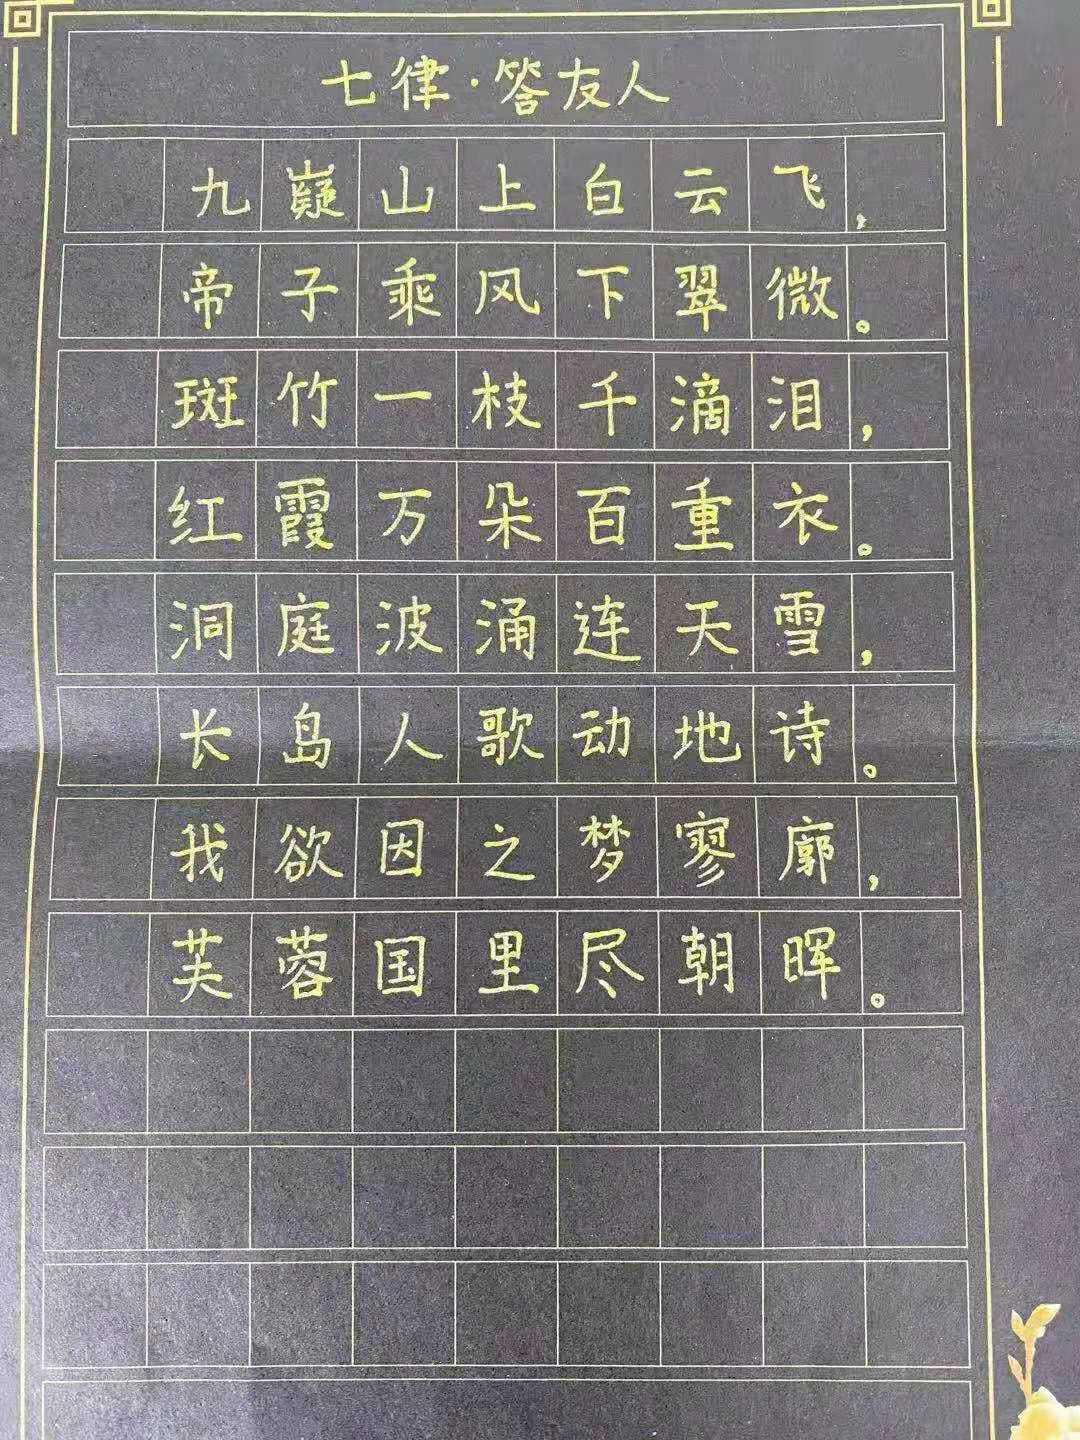 七律·答友人
九嶷山上白云飞,
帝子乘风下翠微。
斑竹一枝千滴泪,
红霞万朵百重衣。
洞庭波涌连天雪,
长岛人歌动地诗。
我欲因之梦寥廓,
芙蓉国里尽朝晖。